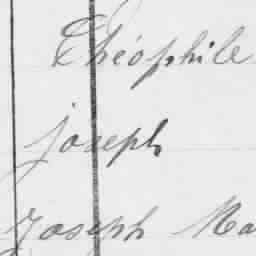 Théophile
joseph
Joseph Ma